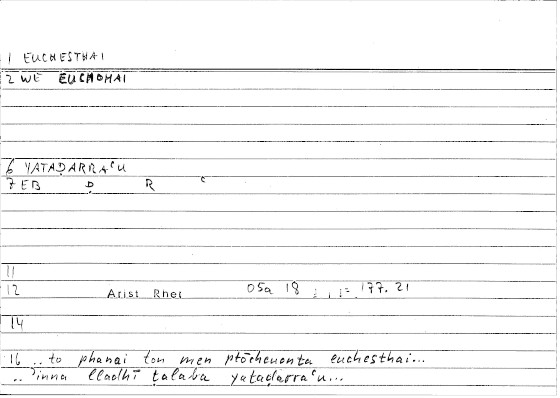 1 EUCHESTHAI
2 WE EUCHOMAI
6 YATAḌARRAʿU
7 EB Ḍ R ʿ
11
12 Arist Rhet 05a 18 = 177.21
14
16 ..to phanai ton men ptōcheuonta euchesthai...
.. ʾinna lladhī ṭalaba yataḍarraʿu...